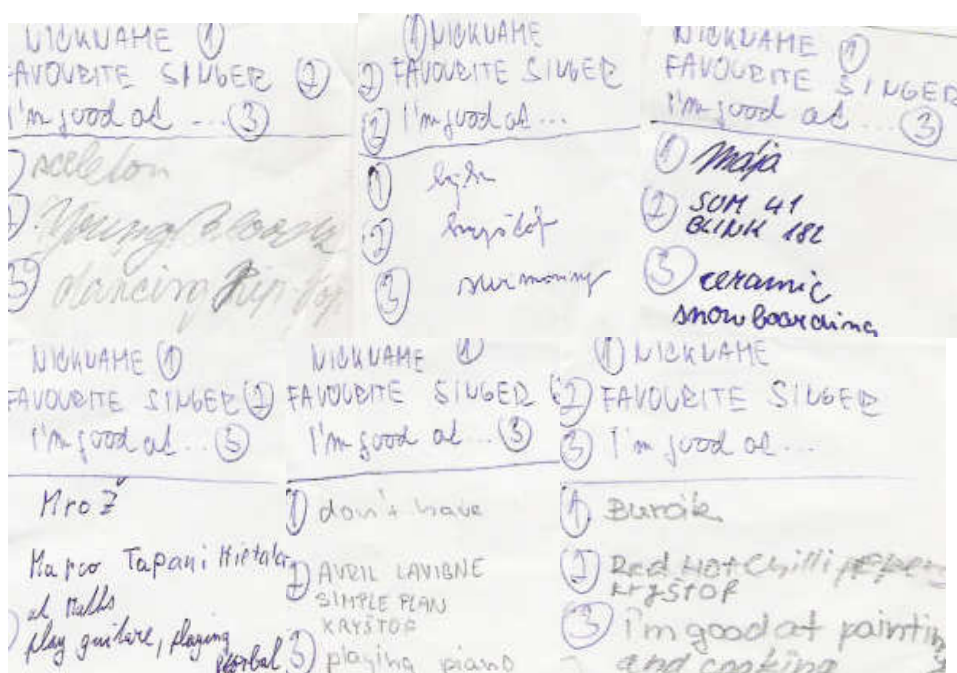 NICKNAME 1
FAVOURITE SINGER 2
I'm good at ... 3
sceleton
2. Young Blood
3 dancing hip hop
1 NICKNAME
2 FAVOURITE SINGER
3 I'm good at ...
1
2 kryštof
3 swimming
NICKNAME 1
FAVOURITE SINGER
i'm good at ... 3
1 mája
2 SUM 41
BLINK 182
3 ceramic
snowboarding
NICKNAME 1
FAVOURITE SINGER 2
I'm good at ... 3
Mrož
Marco Tapani Hietala
at Maths
play guitare, playing
florbal
NICKNAME 1
FAVOURITE SINGER 2
I'm good at ... 3
1 don't have
2 AVRIL LAVIGNE
SIMPLE PLAN
KRYŠTOF
3 playing piano
1 NICKNAME
2 FAVOURITE SINGER
3 I'm good at ...
1 Burčík
2 Red Hot Chilli pepers
kryštof
3 i'm good at painting
and cooking